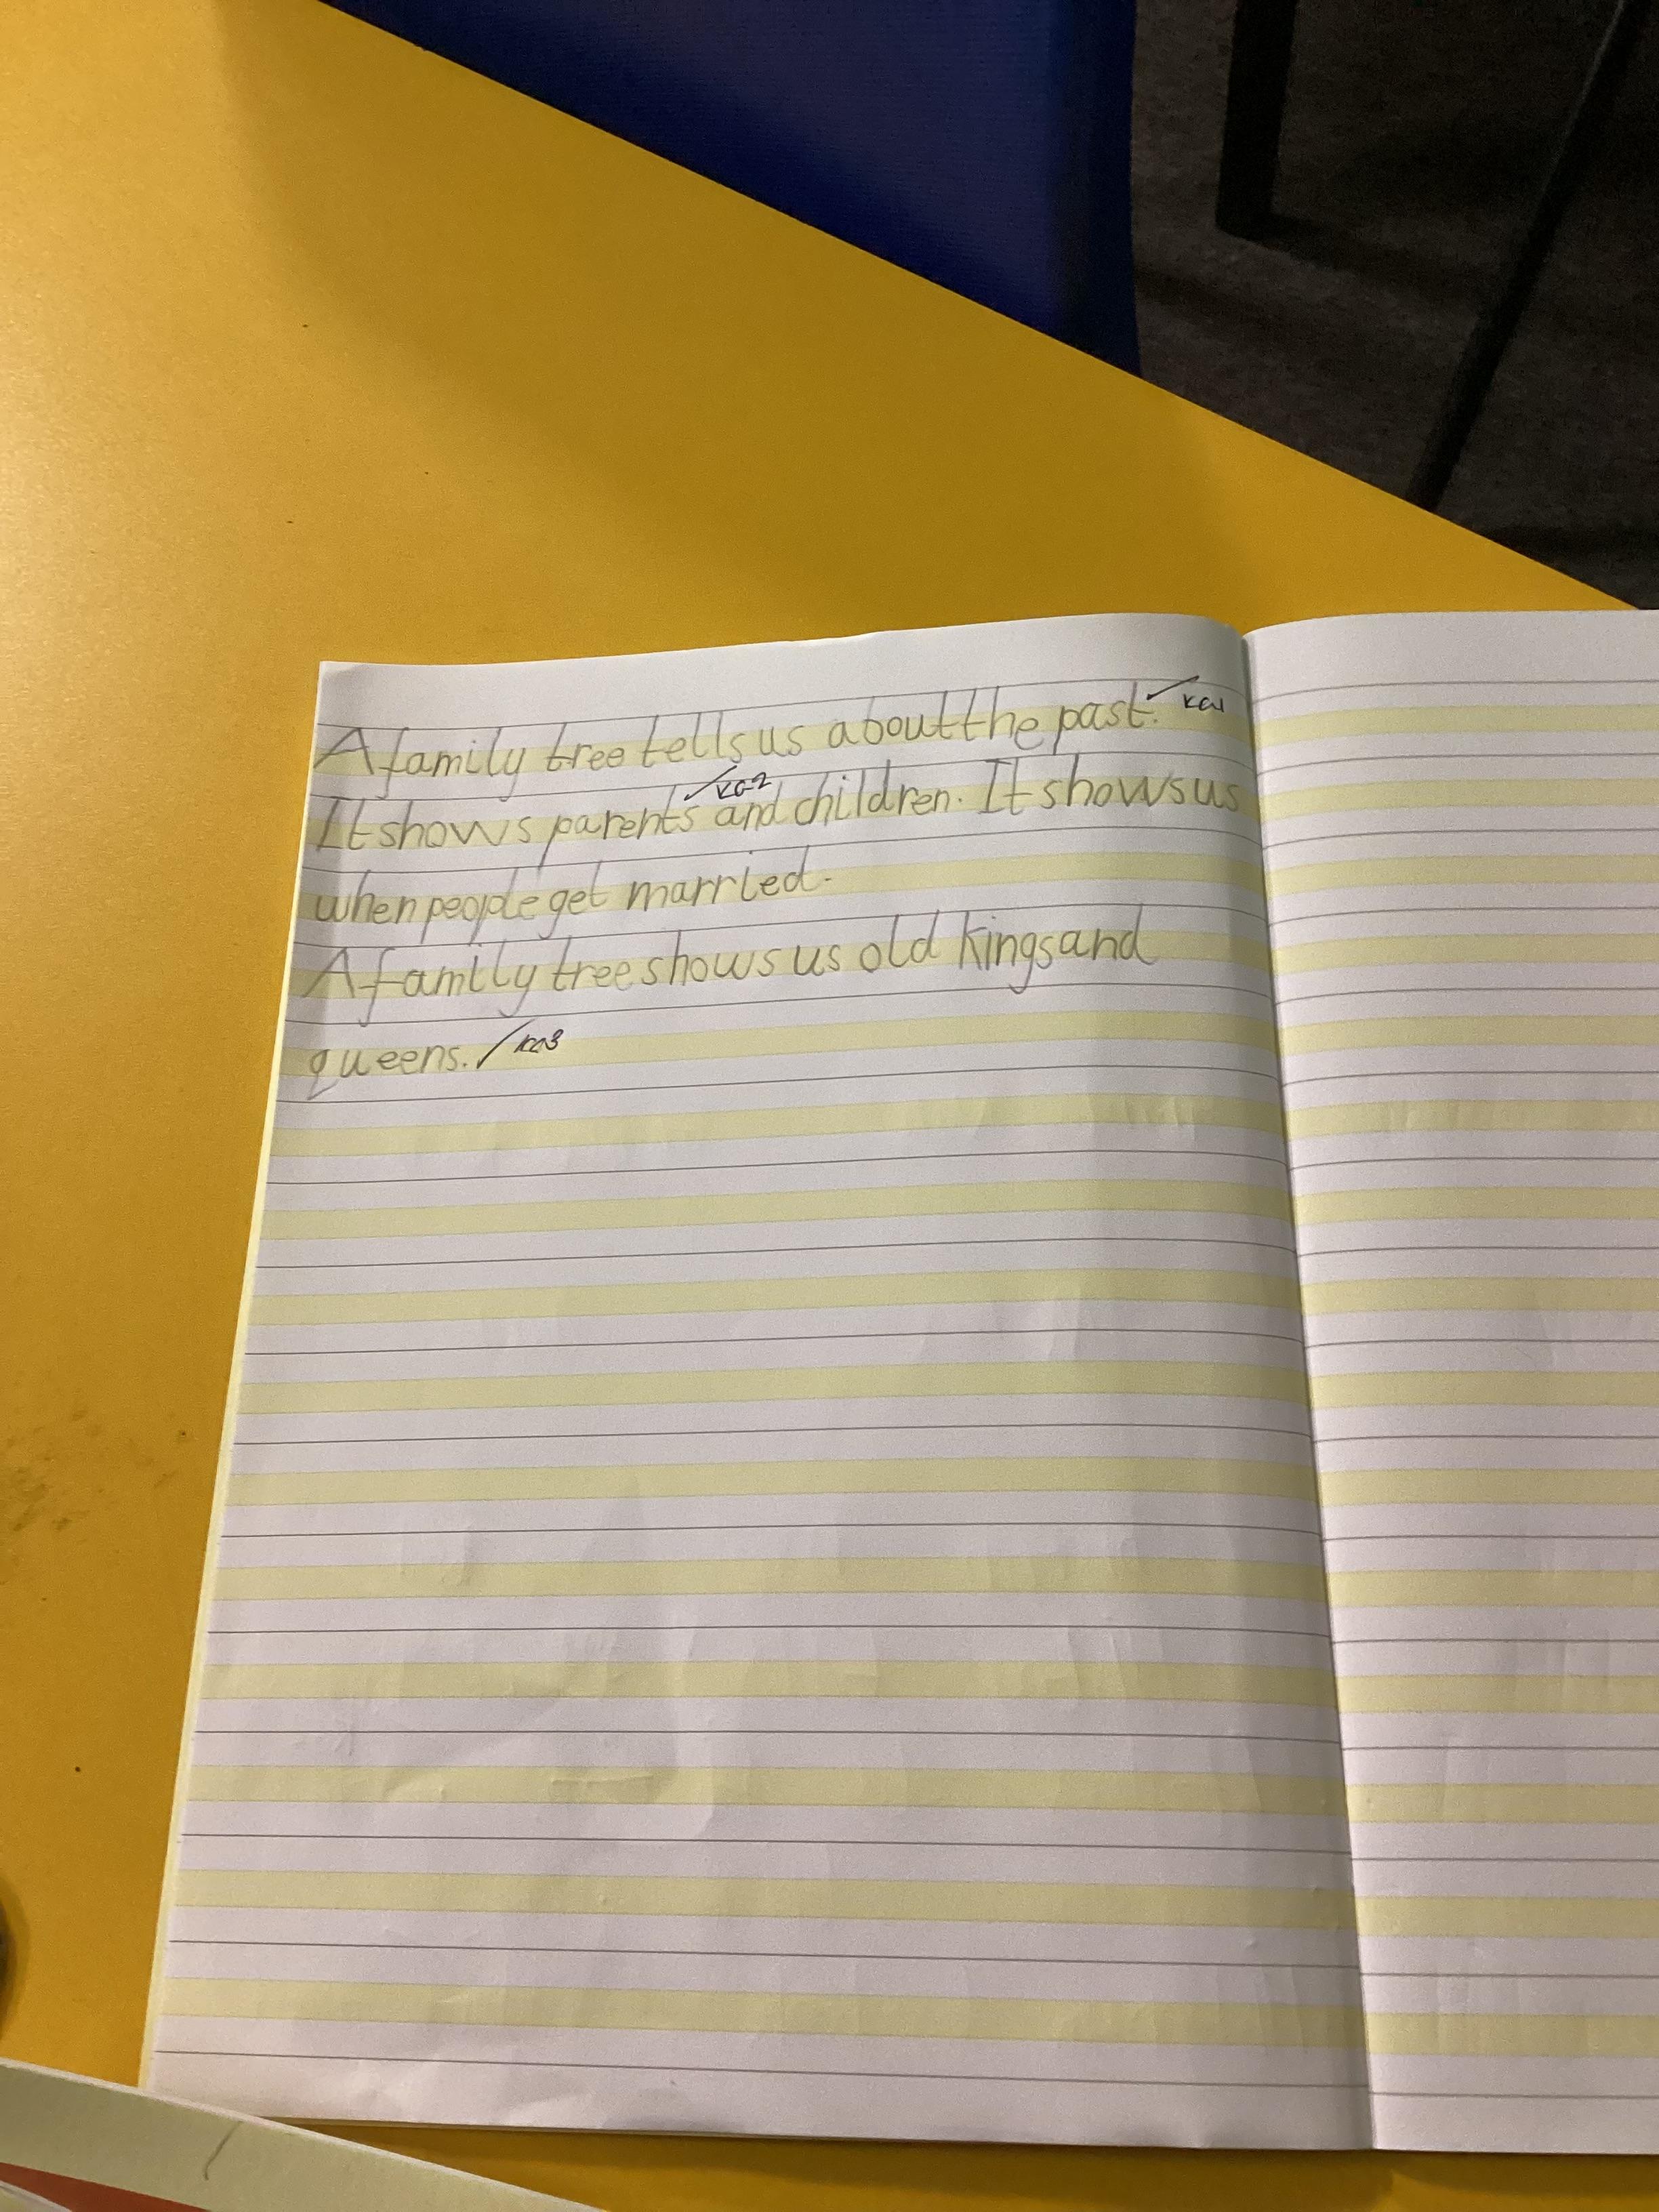 A family tree tells us about the past. ✓ KQ1
It shows parents ✓ KQ2 and children. It shows us
when people get married.
A family tree shows us old kings and
queens. ✓ KQ3